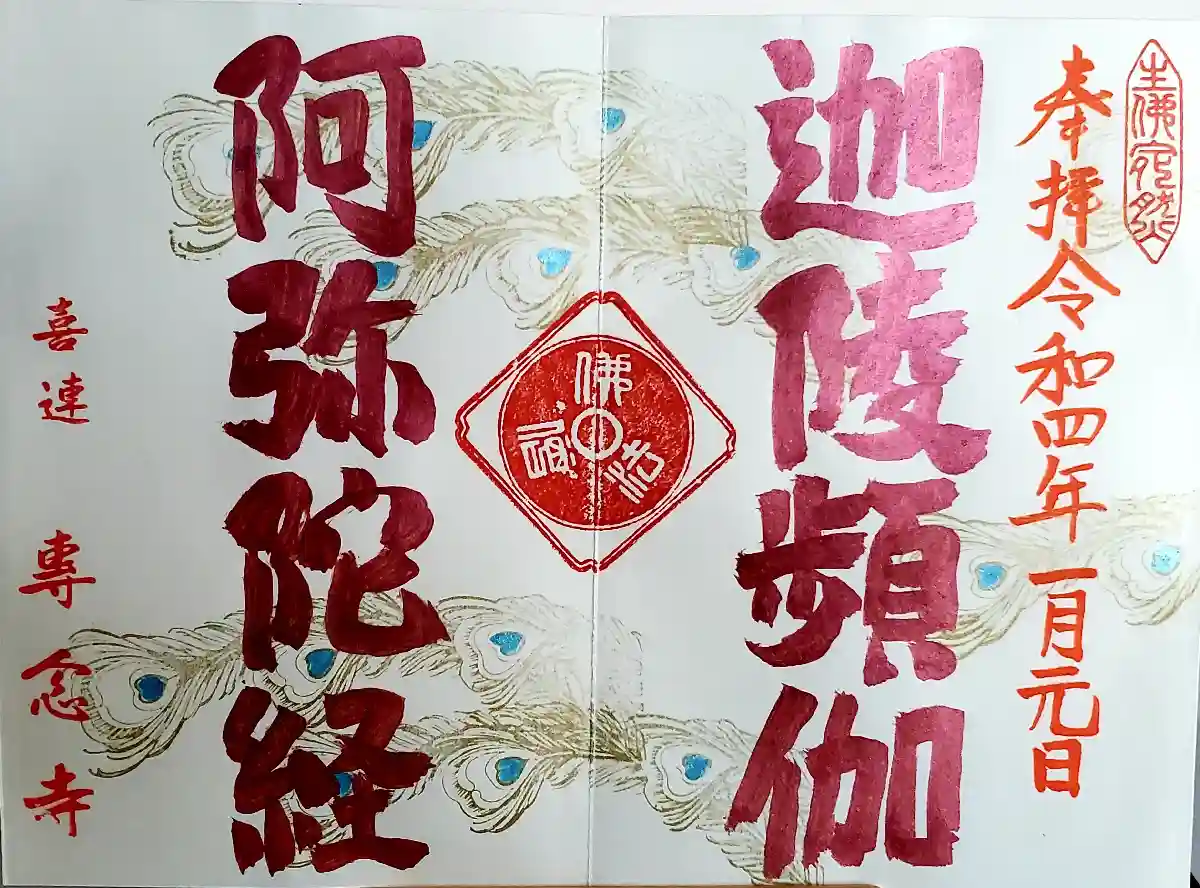 生佛宛然
奉拝令和四年一月元日
迦陵頻伽
阿弥陀経
喜連 專念寺